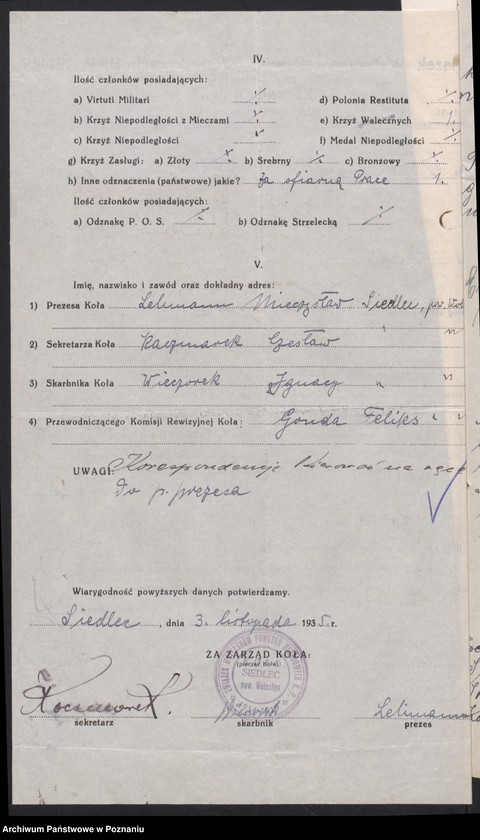 IV.
Ilość członków posiadających:
a) Virtuti Militari
d) Polonia Restituta
b) Krzyż Niepodległości z Mieczami
e) Krzyż Walecznych 1.
c) Krzyż Niepodległości
f) Medal Niepodległości
g) Krzyż Zasługi: a) Złoty b) Srebrny c) Bronzowy
h) Inne odznaczenia (państwowe) jakie? Za ofiarną Prace 1.
Ilość członków posiadających:
a) Odznakę P. O. S. b) Odznakę Strzelecką
V.
Imię, nazwisko i zawód oraz dokładny adres:
1) Prezesa Koła Lehmann Mieczysław Siedlec, pow. Wol
2) Sekretarza Koła Kaczmarek Czesław " "
3) Skarbnika Koła Wieczorek Ignacy " "
4) Przewodniczącego Komisji Rewizyjnej Koła: Gonda Feliks " "
UWAGI: Korespondencję kierować na ręce
p. prezesa
Wiarygodność powyższych danych potwierdzamy.
Siedlec, dnia 3. listopada 1935. r.
ZA ZARZĄD KOŁA:
(pieczęć Koła)
SIEDLEC
pow. Wolsztyn
Kaczmarek. Lehmann
sekretarz skarbnik prezes
Archiwum Państwowe w Poznaniu